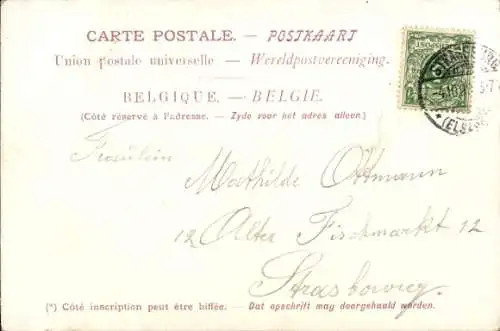 CARTE POSTALE. — POSTKAART
Union postale universelle — Wereldpostvereeniging.
BELGIQUE. — BELGIE.
(Côté réservé à l'adresse. — Zyde voor het adres alleen.)
Fräulein
Mathilde Ottmann
12 Alter Fischmarkt 12
Strasbourg
(*) Côté inscription peut être biffée. — Dat opschrift mag doorgehaald worden.